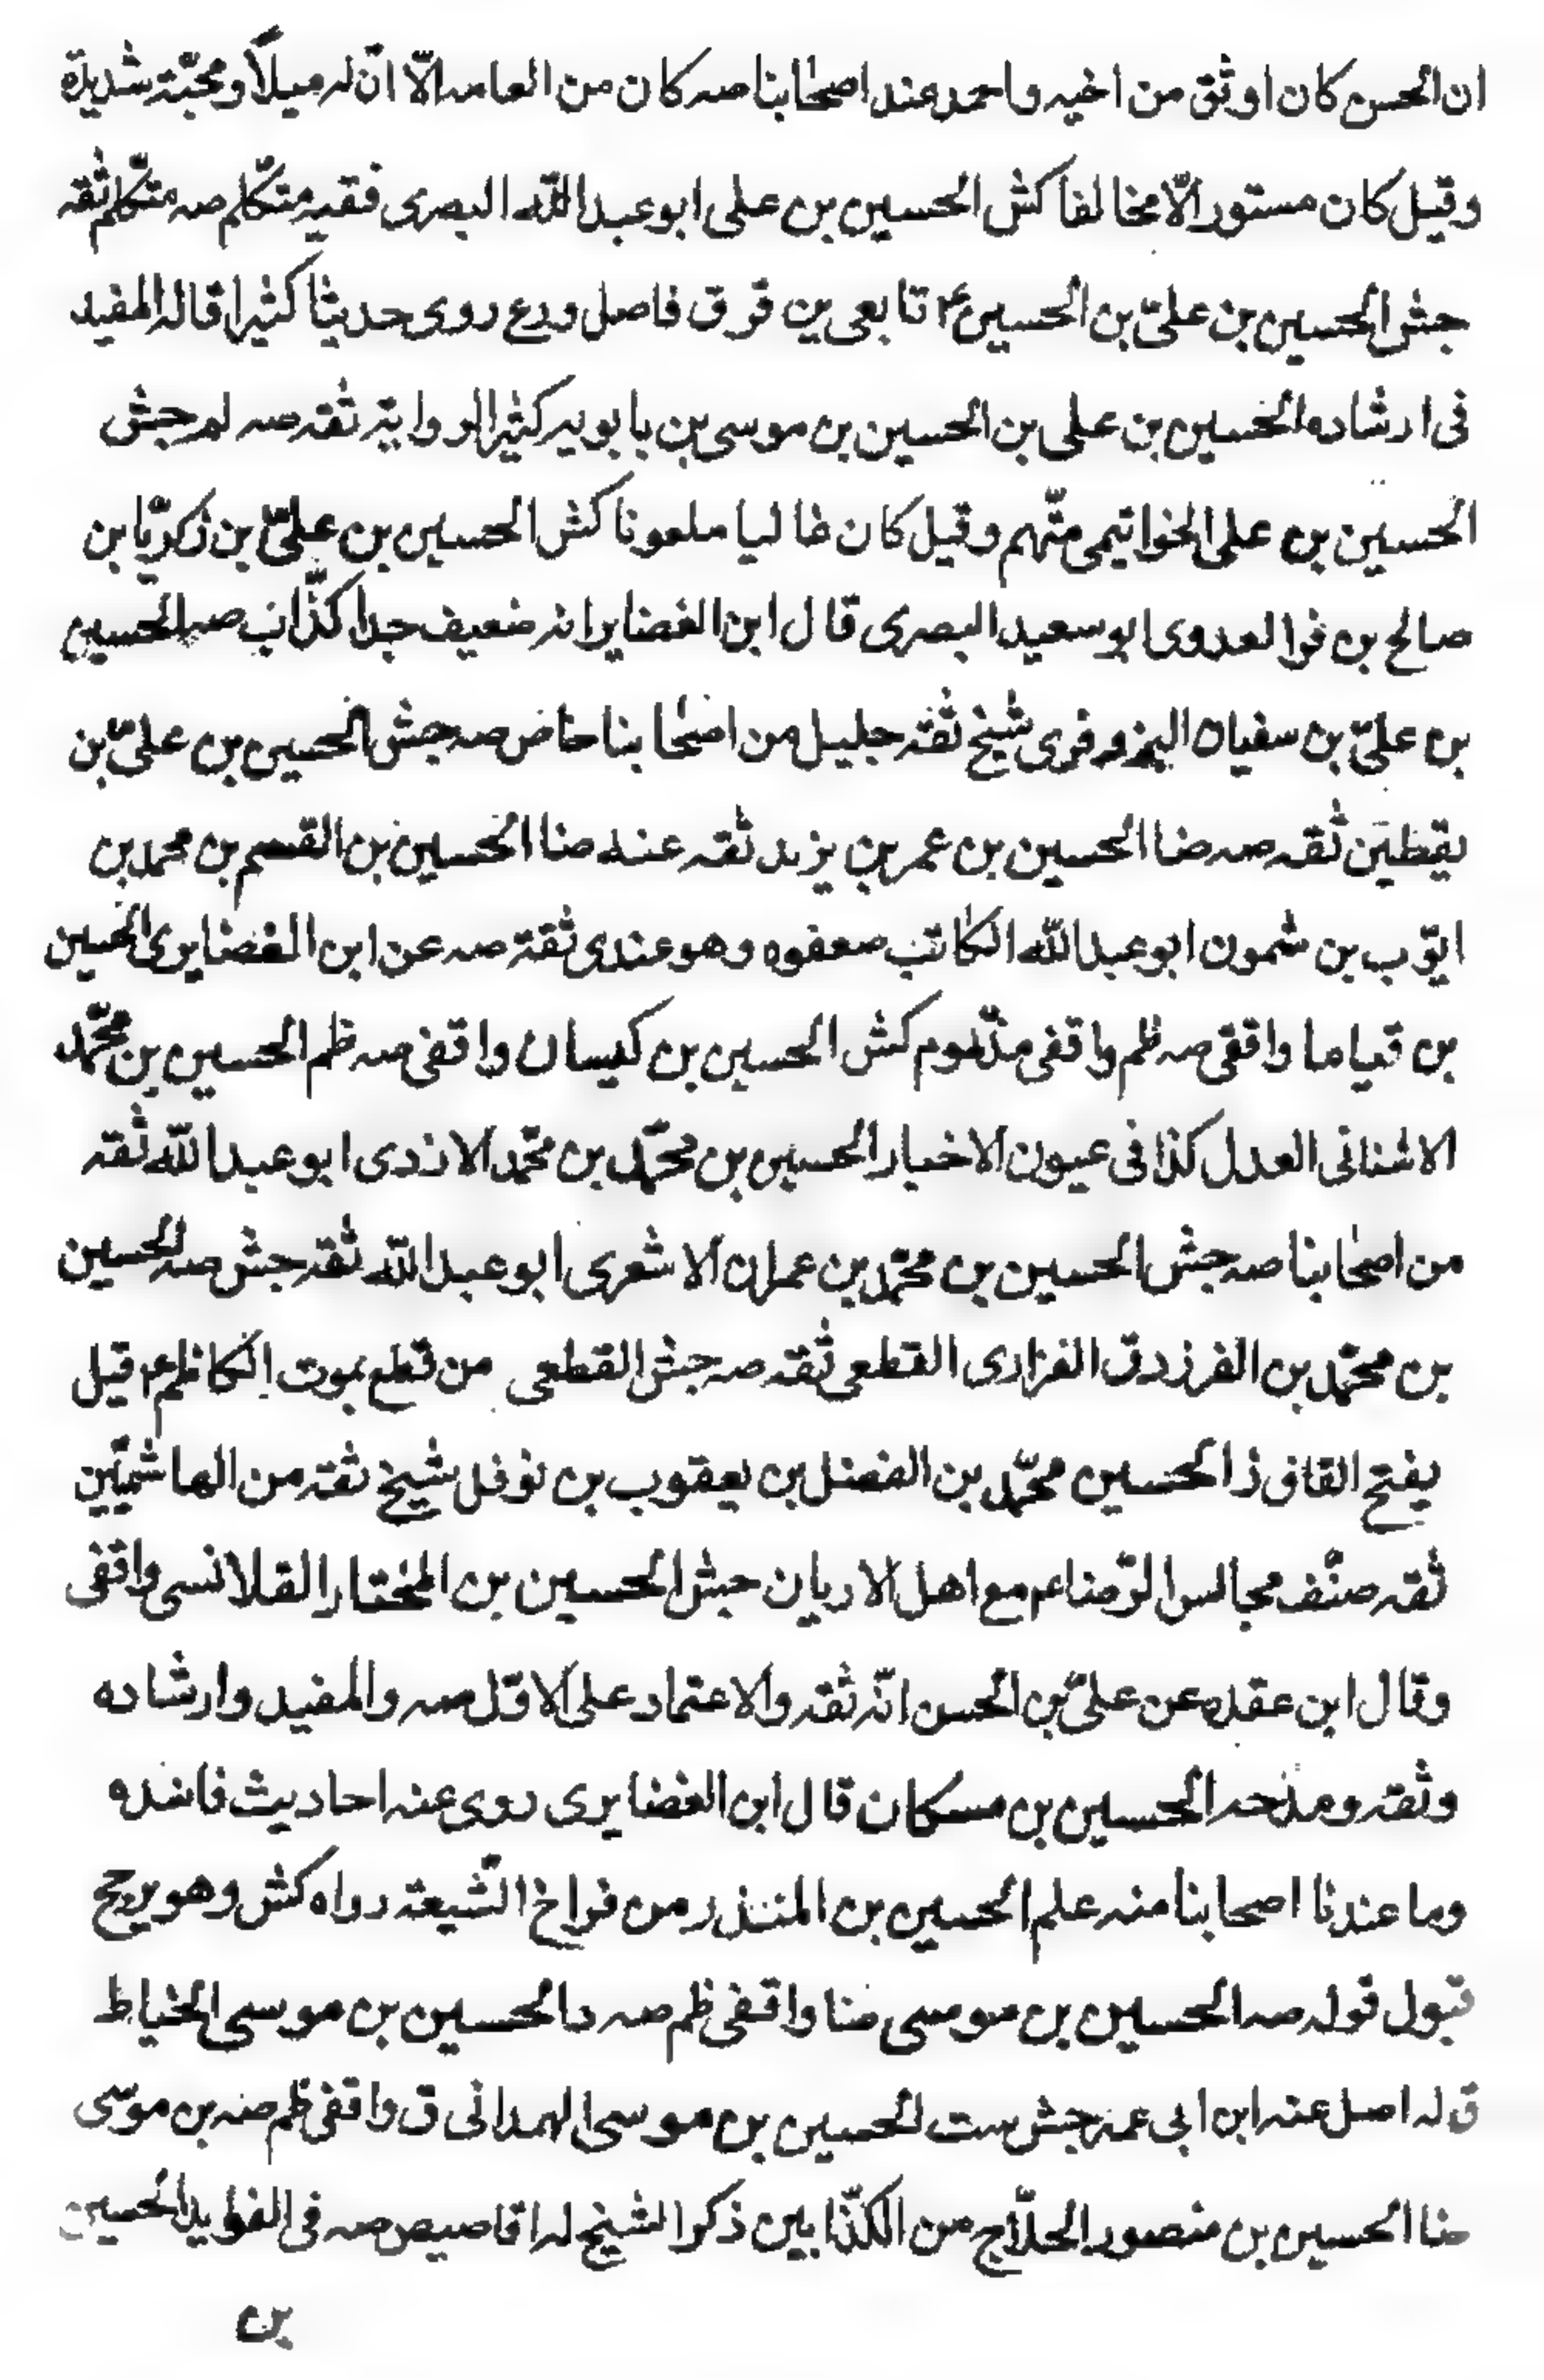 ان الحسن كان اوثق من اخيه واحمد عند اصحابنا صه كان من العامه الّا انّ له ميلاً ومحبّة شديدة
وقيل كان مستور الّا مخالفا كش الحسين بن على ابو عبد اللّه البصرى فقيه متكلم صه متكلم ثقه
جش الحسين بن علىّ بن الحسين ع تابعى ين قر ق فاصل ورع روى حديثا كثيرا قاله المفيد
فى ارشاده الحسين بن على بن الحسين بن موسى بن بابويه كثير الرواية ثقه صه لم جش
الحسين بن على الخواتيمى متّهم وقيل كان غاليا ملعونا كش الحسين بن علىّ بن زكريّا بن
صالح بن فرا العدوى ابو سعيد البصرى قال ابن الغضاير انه ضعيف جدا كذّاب صه الحسين
بن علىّ بن سفيان البزوفرى شيخ ثقه جليل من اصحابنا خاص صه جش الحسين بن علىّ بن
يقطين ثقه صه ضا الحسين بن عمر بن يزيد ثقه عنه ضا الحسين بن القسم بن محمد بن
ايّوب بن شمون ابو عبد اللّه الكاتب ضعفوه وهو عندى ثقة صه عن ابن الغضايرى الحسين
بن قياما واقفى صه ظم واقفى مذموم كش الحسين بن كيسان واقفى صه ظم الحسين بن محمّد
الاشنانى العدل كذا فى عيون الاخبار الحسين بن محمّد بن محمّد الازدى ابو عبد اللّه ثقه
من اصحابنا صه جش الحسين بن محمّد بن عمران الاشعرى ابو عبد اللّه ثقه جش صه الحسين
بن محمّد بن الفرزدق الفزارى القطعى ثقه صه جش القطعى من قطع بموت الكاظم ع قيل
بفتح القاف ذا الحسين محمّد بن الفضل بن يعقوب بن نوفل شيخ ثقه من الهاشميّين
ثقه صنّف مجالس الرّضا عم مع اهل الاديان جش الحسين بن المختار القلانسى واقفى
وقال ابن عقده عن علىّ بن الحسن انّه ثقه والاعتماد على الاوّل صه والمفيد وارشاده
وثقه ومدحه الحسين بن مسكان قال ابن الغضايرى روى عنه احاديث فاسده
وما عندنا اصحابنا منه علم الحسين بن المنذر من فراخ الشّيعة رواه كش وهو يرجح
قبول قوله صه الحسين بن موسى ضا واقفى ظم صه د الحسين بن موسى الخياط
ق له اصل عنه ابن ابى عمير جش ست الحسين بن موسى الهمدانى ق واقفى ظم صه بن موسى
ضا الحسين بن منصور الحلّاج من الكذّابين ذكر الشيخ له اقاصيص صه فى الفوايد الحسين
بن